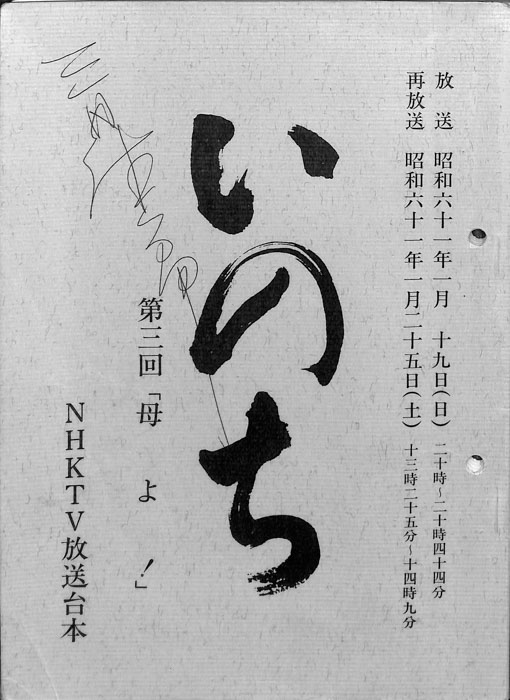 放送 昭和六十一年一月 十九日(日) 二十時～二十時四十四分
再放送 昭和六十一年一月二十五日(土) 十三時二十五分～十四時九分
いのち
第三回「母よ!」
NHKTV放送台本